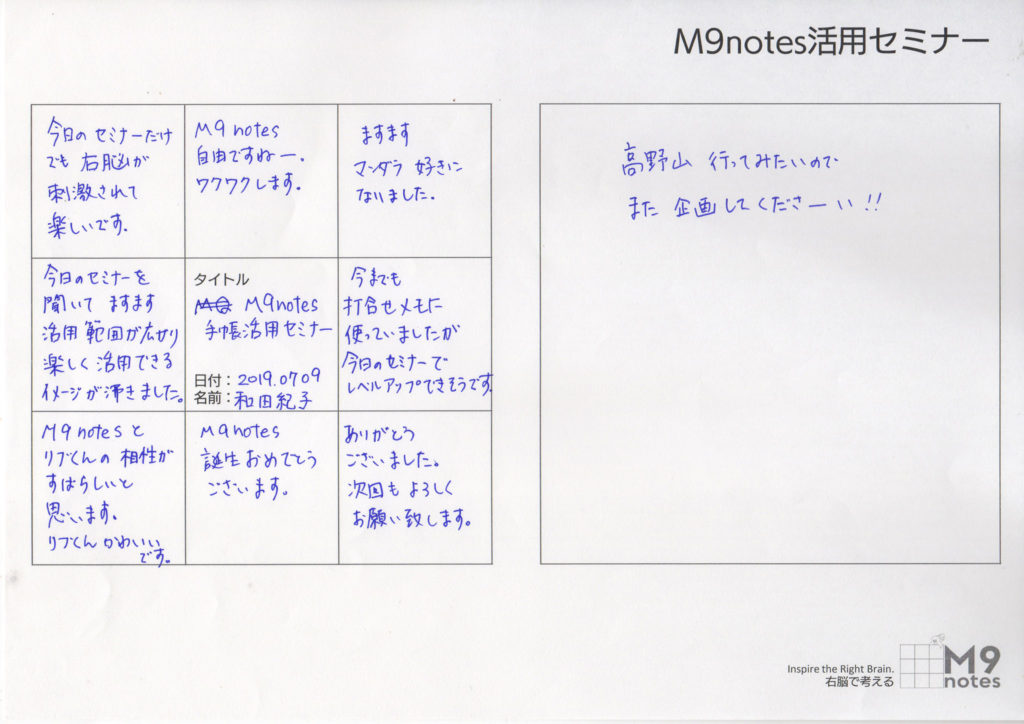 M9notes活用セミナー
今日のセミナーだけ
でも右脳が
刺激されて
楽しいです。
M9 notes
自由ですねー。
ワクワクします。
ますます
マンダラ 好きに
なりました。
今日のセミナーを
聞いて ますます
活用範囲が広がり
楽しく活用できる
イメージが湧きました。
タイトル
M9notes
手帳活用セミナー
日付：2019.07.09
名前：和田紀子
今までも
打合せメモに
使っていましたが
今日のセミナーで
レベルアップできそうです。
M9notesと
リブくんの相性が
すばらしいと
思います。
リブくんかわいい
です。
M9notes
誕生おめでとう
ございます。
ありがとう
ございました。
次回もよろしく
お願い致します。
高野山 行ってみたいので
また 企画してくださーい!!
Inspire the Right Brain.
右脳で考える
M9
notes